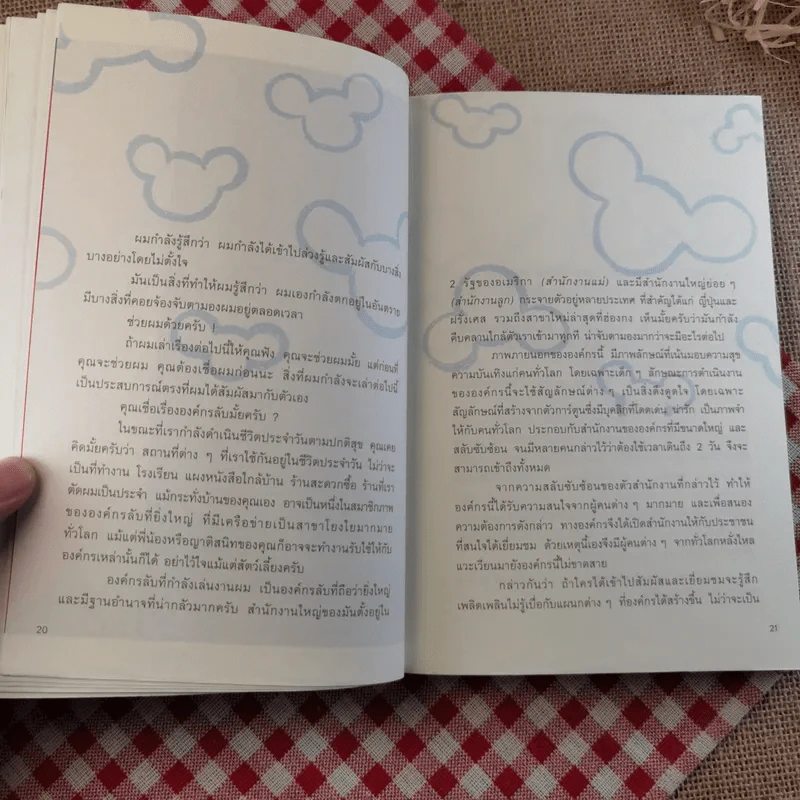 ผมกำลังรู้สึกว่า ผมกำลังได้เข้าไปล่วงรู้และสัมผัสกับบางสิ่ง
บางอย่างโดยไม่ตั้งใจ
มันเป็นสิ่งที่ทำให้ผมรู้สึกว่า ผมเองกำลังตกอยู่ในอันตราย
มีบางสิ่งที่คอยจ้องจับตามองผมอยู่ตลอดเวลา
ช่วยผมด้วยครับ !
ถ้าผมเล่าเรื่องต่อไปนี้ให้คุณฟัง คุณจะช่วยผมมั้ย แต่ก่อนที่
คุณจะช่วยผม คุณต้องเชื่อผมก่อนนะ สิ่งที่ผมกำลังจะเล่าต่อไปนี้
เป็นประสบการณ์ตรงที่ผมได้สัมผัสมากับตัวเอง
คุณเชื่อเรื่ององค์กรลับมั้ยครับ ?
ในขณะที่เรากำลังดำเนินชีวิตประจำวันตามปกติสุข คุณเคย
คิดมั้ยครับว่า สถานที่ต่าง ๆ ที่เราใช้กันอยู่ในชีวิตประจำวัน ไม่ว่าจะ
เป็นที่ทำงาน โรงเรียน แผงหนังสือใกล้บ้าน ร้านสะดวกซื้อ ร้านที่เรา
ตัดผมเป็นประจำ แม้กระทั่งบ้านของคุณเอง อาจเป็นหนึ่งในสมาชิกภาพ
ขององค์กรลับที่ยิ่งใหญ่ ที่มีเครือข่ายเป็นสาขาโยงใยมากมาย
ทั่วโลก แม้แต่พี่น้องหรือญาติสนิทของคุณก็อาจจะทำงานรับใช้ให้กับ
องค์กรเหล่านั้นก็ได้ อย่าไว้ใจแม้แต่สัตว์เลี้ยงครับ
องค์กรลับที่กำลังเล่นงานผม เป็นองค์กรลับที่ถือว่ายิ่งใหญ่
และมีฐานอำนาจที่น่ากลัวมากครับ สำนักงานใหญ่ของมันตั้งอยู่ใน
20
2 รัฐของอเมริกา (สำนักงานแม่) และมีสำนักงานใหญ่ย่อย ๆ
(สำนักงานลูก) กระจายตัวอยู่หลายประเทศ ที่สำคัญได้แก่ ญี่ปุ่นและ
ฝรั่งเศส รวมถึงสาขาใหม่ล่าสุดที่ฮ่องกง เห็นมั้ยครับว่ามันกำลัง
คืบคลานใกล้ตัวเราเข้ามาทุกที น่าจับตามองมากว่าจะมีอะไรต่อไป
ภาพภายนอกขององค์กรนี้ มีภาพลักษณ์ที่เน้นมอบความสุข
ความบันเทิงแก่คนทั่วโลก โดยเฉพาะเด็ก ๆ ลักษณะการดำเนินงาน
ขององค์กรนี้จะใช้สัญลักษณ์ต่าง ๆ เป็นสิ่งดึงดูดใจ โดยเฉพาะ
สัญลักษณ์ที่สร้างจากตัวการ์ตูนซึ่งมีบุคลิกที่โดดเด่น น่ารัก เป็นภาพจำ
ให้กับคนทั่วโลก ประกอบกับสำนักงานขององค์กรที่มีขนาดใหญ่ และ
สลับซับซ้อน จนมีหลายคนกล่าวไว้ว่าต้องใช้เวลาเดินถึง 2 วัน จึงจะ
สามารถเข้าถึงทั้งหมด
จากความสลับซับซ้อนของตัวสำนักงานที่กล่าวไว้ ทำให้
องค์กรนี้ได้รับความสนใจจากผู้คนต่าง ๆ มากมาย และเพื่อสนอง
ความต้องการดังกล่าว ทางองค์กรจึงได้เปิดสำนักงานให้กับประชาชน
ที่สนใจได้เยี่ยมชม ด้วยเหตุนี้เองจึงมีผู้คนต่าง ๆ จากทั่วโลกหลั่งไหล
แวะเวียนมายังองค์กรนี้ไม่ขาดสาย
กล่าวกันว่า ถ้าใครได้เข้าไปสัมผัสและเยี่ยมชมจะรู้สึก
เพลิดเพลินไม่รู้เบื่อกับแผนกต่าง ๆ ที่องค์กรได้สร้างขึ้น ไม่ว่าจะเป็น
21